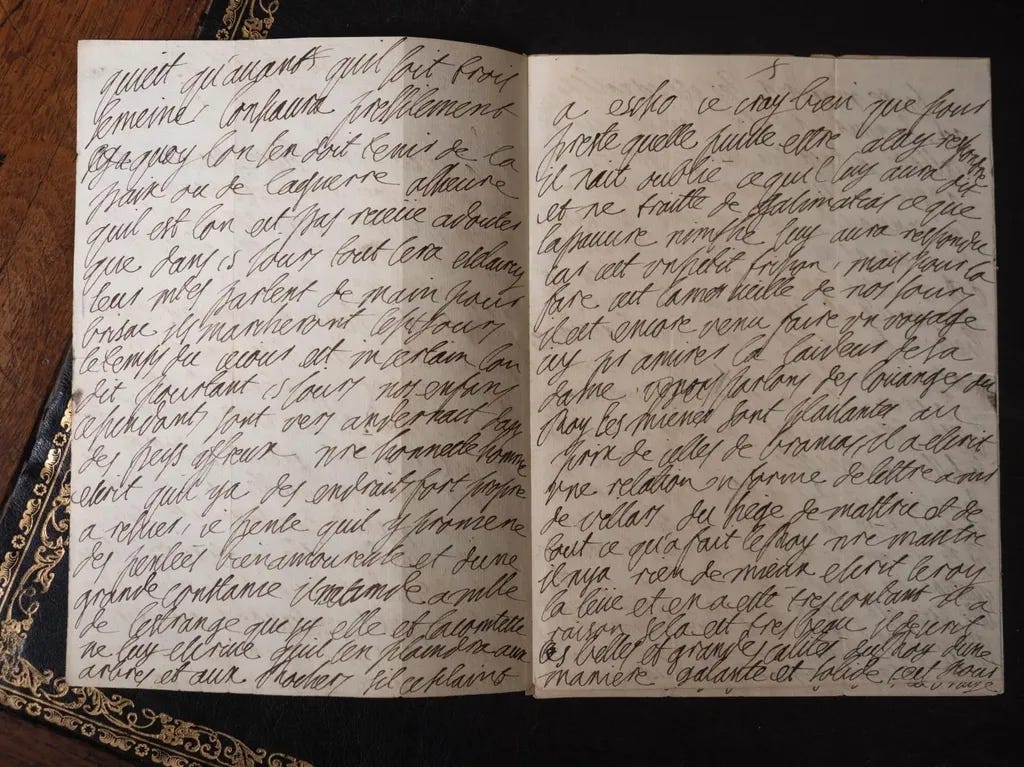 quelt qu'auant quil soit trois
semeines lon saura preusement
a quoy lon sen doit tenir de la
paix ou de laguerre alheure
quil est lon est pas receue adouter
que dans 15 jours tout sera esclaircy
leurs mtes partent de main pour
brisac ils marcheront sept jours
letemps du ceiour est in certain lon
dit pourtant 15 jours nos enfans
cependant sont vers andernait dans
des peys affreux nre honneste homme
escrit quil ya des endrait fort propre
a resuer, ie pense quil y promene
des pensées bien amoureuse et dune
grande constance il a mille
de lestrange que sy elle et lacomtesse
ne luy escriue quil sen plaindra aux
arbres et aux rochers sil ce plaint
5
a escho ie cray bien que pour
preste quelle puisse estre aluy respondre
il nait oublié cequil luy aura dit
et ne traitte de galimatias ce que
lapauure nimphe luy aura respondu
car cest vn petit fripon, mais pour la
fare cest la merueille de nos jours
il est encore venu faire vn voyage
icy pr amirer la laideur de sa
dame parlons des louanges du
Roy les mienes sont plaisantes au
prix de celles de brancas, il a escrit
vne relation en forme de lettre a mr
de villars du siege de mastric et de
tout ce qu'a fait le Roy nre maistre
il nya rien de mieux escrit le roy
la leüe et en a esté tres contant il a
raison sela est tres beau il descrit
les belles et grandes calités du roy dune
maniere galante et solide cest pour